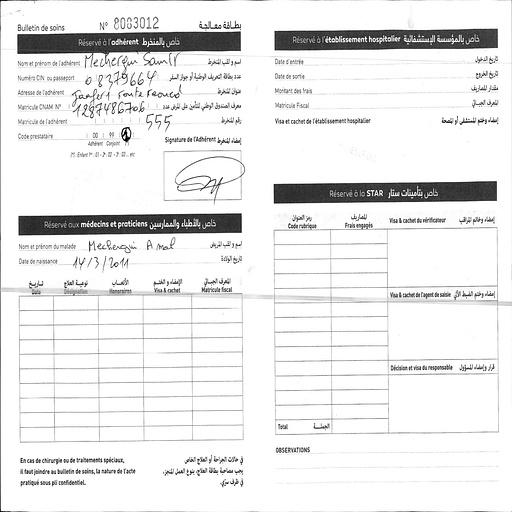 Bulletin de soins N° 8003012 بطاقة معالجة
Réservé à l'adhérent خاص بالمنخرط
Nom et prénom de l'adhérent Mechergui Samir اسم و لقب المنخرط
Numéro CIN ou passeport 08379664 عدد بطاقة التعريف الوطنية أو جواز السفر
Adresse de l'adhérent route عنوان المنخرط
Matricule CNAM N° 1287486706 معرف الصندوق الوطني للتأمين على المرض عدد
Matricule de l'adhérent 555 رقم المنخرط
Code prestataire 00 99
Adhérent Conjoint
Signature de l'Adhérent إمضاء المنخرط
Réservé aux médecins et praticiens خاص بالأطباء والممارسين
Nom et prénom du malade Mechergui Amal اسم و لقب المريض
Date de naissance 14/3/2011 تاريخ الولادة
تاريخ نوعية العلاج الأتعاب الإمضاء و الختم المعرف الجبائي
Date Désignation Honoraires Visa & cachet Matricule fiscal
En cas de chirurgie ou de traitements spéciaux,
il faut joindre au bulletin de soins, la nature de l'acte
pratiqué sous pli confidentiel.
في حالات الجراحة أو العلاج الخاص
يجب مصاحبة بطاقة العلاج، بنوع العمل المنجز،
في ظرف سري.
Réservé à l'établissement hospitalier خاص بالمؤسسة الإستشفائية
Date d'entrée تاريخ الدخول
Date de sortie تاريخ الخروج
Montant des frais مقدار المصاريف
Matricule Fiscal المعرف الجبائي
Visa et cachet de l'établissement hospitalier إمضاء وختم المستشفى أو المصحة
Réservé à la STAR خاص بتأمينات ستار
رمز العنوان المصاريف
Code rubrique Frais engagés
Visa & cachet du vérificateur إمضاء وختم المراقب
Visa & cachet de l'agent de saisie إمضاء وختم الضبط الآلي
Décision et visa du responsable قرار وإمضاء المسؤول
Total الجملة
OBSERVATIONS